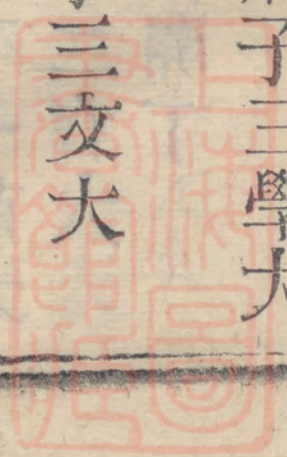 子三學大
三文大
上海圖
書館藏